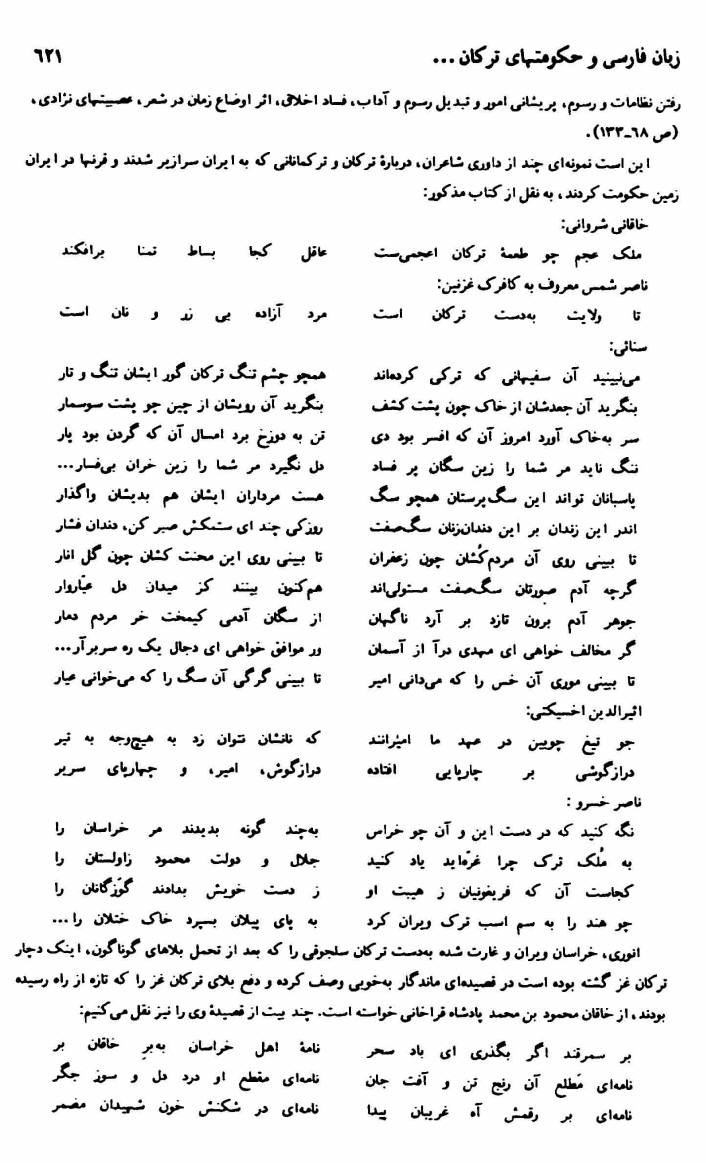 زبان فارسی و حکومتهای ترکان ... ۶۲۱
رفتن نظامات و رسوم، پریشانی امور و تبدیل رسوم و آداب، فساد اخلاق، اثر اوضاع زمان در شعر، عصبیتهای نژادی،
(ص ۶۸ـ۱۳۳).
این است نمونه‌ای چند از داوری شاعران، دربارهٔ ترکان و ترکمانانی که به ایران سرازیر شدند و قرنها در ایران
زمین حکومت کردند، به نقل از کتاب مذکور:
خاقانی شروانی:
ملک عجم چو طعمهٔ ترکان اعجمی‌ست عاقل کجا بساط تمنا برافکند
ناصر شمس معروف به کافرک غزنین:
تا ولایت به‌دست ترکان است مرد آزاده بی زر و نان است
سنائی:
می‌نبینید آن سفیهانی که ترکی کرده‌اند همچو چشم تنگ ترکان گور ایشان تنگ و تار
بنگرید آن جعدشان از خاک چون پشت کشف بنگرید آن رویشان از چین چو پشت سوسمار
سر به‌خاک آورد امروز آن که افسر بود دی تن به دوزخ برد امسال آن که گردن بود پار
ننگ ناید مر شما را زین سگان پر فساد دل نگیرد مر شما را زین خران بی‌فسار...
پاسبانان تواند این سگ‌پرستان همچو سگ هست مرداران ایشان هم بدیشان واگذار
اندر این زندان بر این دندان‌زنان سگ‌صفت روزکی چند ای ستمکش صبر کن، دندان فشار
تا ببینی روی آن مردم‌کُشان چون زعفران تا ببینی روی این محنت کشان چون گل انار
گرچه آدم صورتان سگ‌صفت مستولی‌اند هم‌کنون بینند کز میدان دل عیّاروار
جوهر آدم برون تازد بر آرد ناگهان از سگان آدمی کیمخت خر مردم دمار
گر مخالف خواهی ای مهدی درآ از آسمان ور موافق خواهی ای دجال یک ره سربرآر...
تا ببینی موری آن خس را که می‌دانی امیر تا ببینی گرگی آن سگ را که می‌خوانی عیار
اثیرالدین اخسیکتی:
چو تیغ چوبین در عهد ما امیرانند که نانشان نتوان زد به هیچ‌وجه به تیر
درازگوشی بر چارپایی افتاده درازگوش، امیر، و چهارپای سریر
ناصر خسرو :
نگه کنید که در دست این و آن چو خراس به‌چند گونه بدیدند مر خراسان را
به مُلک ترک چرا غرّه‌اید یاد کنید جلال و دولت محمود زاولستان را
کجاست آن که فریغونیان ز هیبت او ز دست خویش بدادند گوزگانان را
چو هند را به سم اسب ترک ویران کرد به پای پیلان بسپرد خاک ختلان را...
انوری، خراسان ویران و غارت شده به‌دست ترکان سلجوقی را که بعد از تحمل بلاهای گوناگون، اینک دچار
ترکان غز گشته بوده است در قصیده‌ای ماندگار به‌خوبی وصف کرده و دفع بلای ترکان غز را که تازه از راه رسیده
بودند، از خاقان محمود بن محمد پادشاه قراخانی خواسته است. چند بیت از قصیدهٔ وی را نیز نقل می‌کنیم:
بر سمرقند اگر بگذری ای باد سحر نامهٔ اهل خراسان به‌برِ خاقان بر
نامه‌ای مَطلع آن رنج تن و آفت جان نامه‌ای مقطع او درد دل و سوز جگر
نامه‌ای بر رقمش آه غریبان پیدا نامه‌ای در شکنش خون شهیدان مضمر